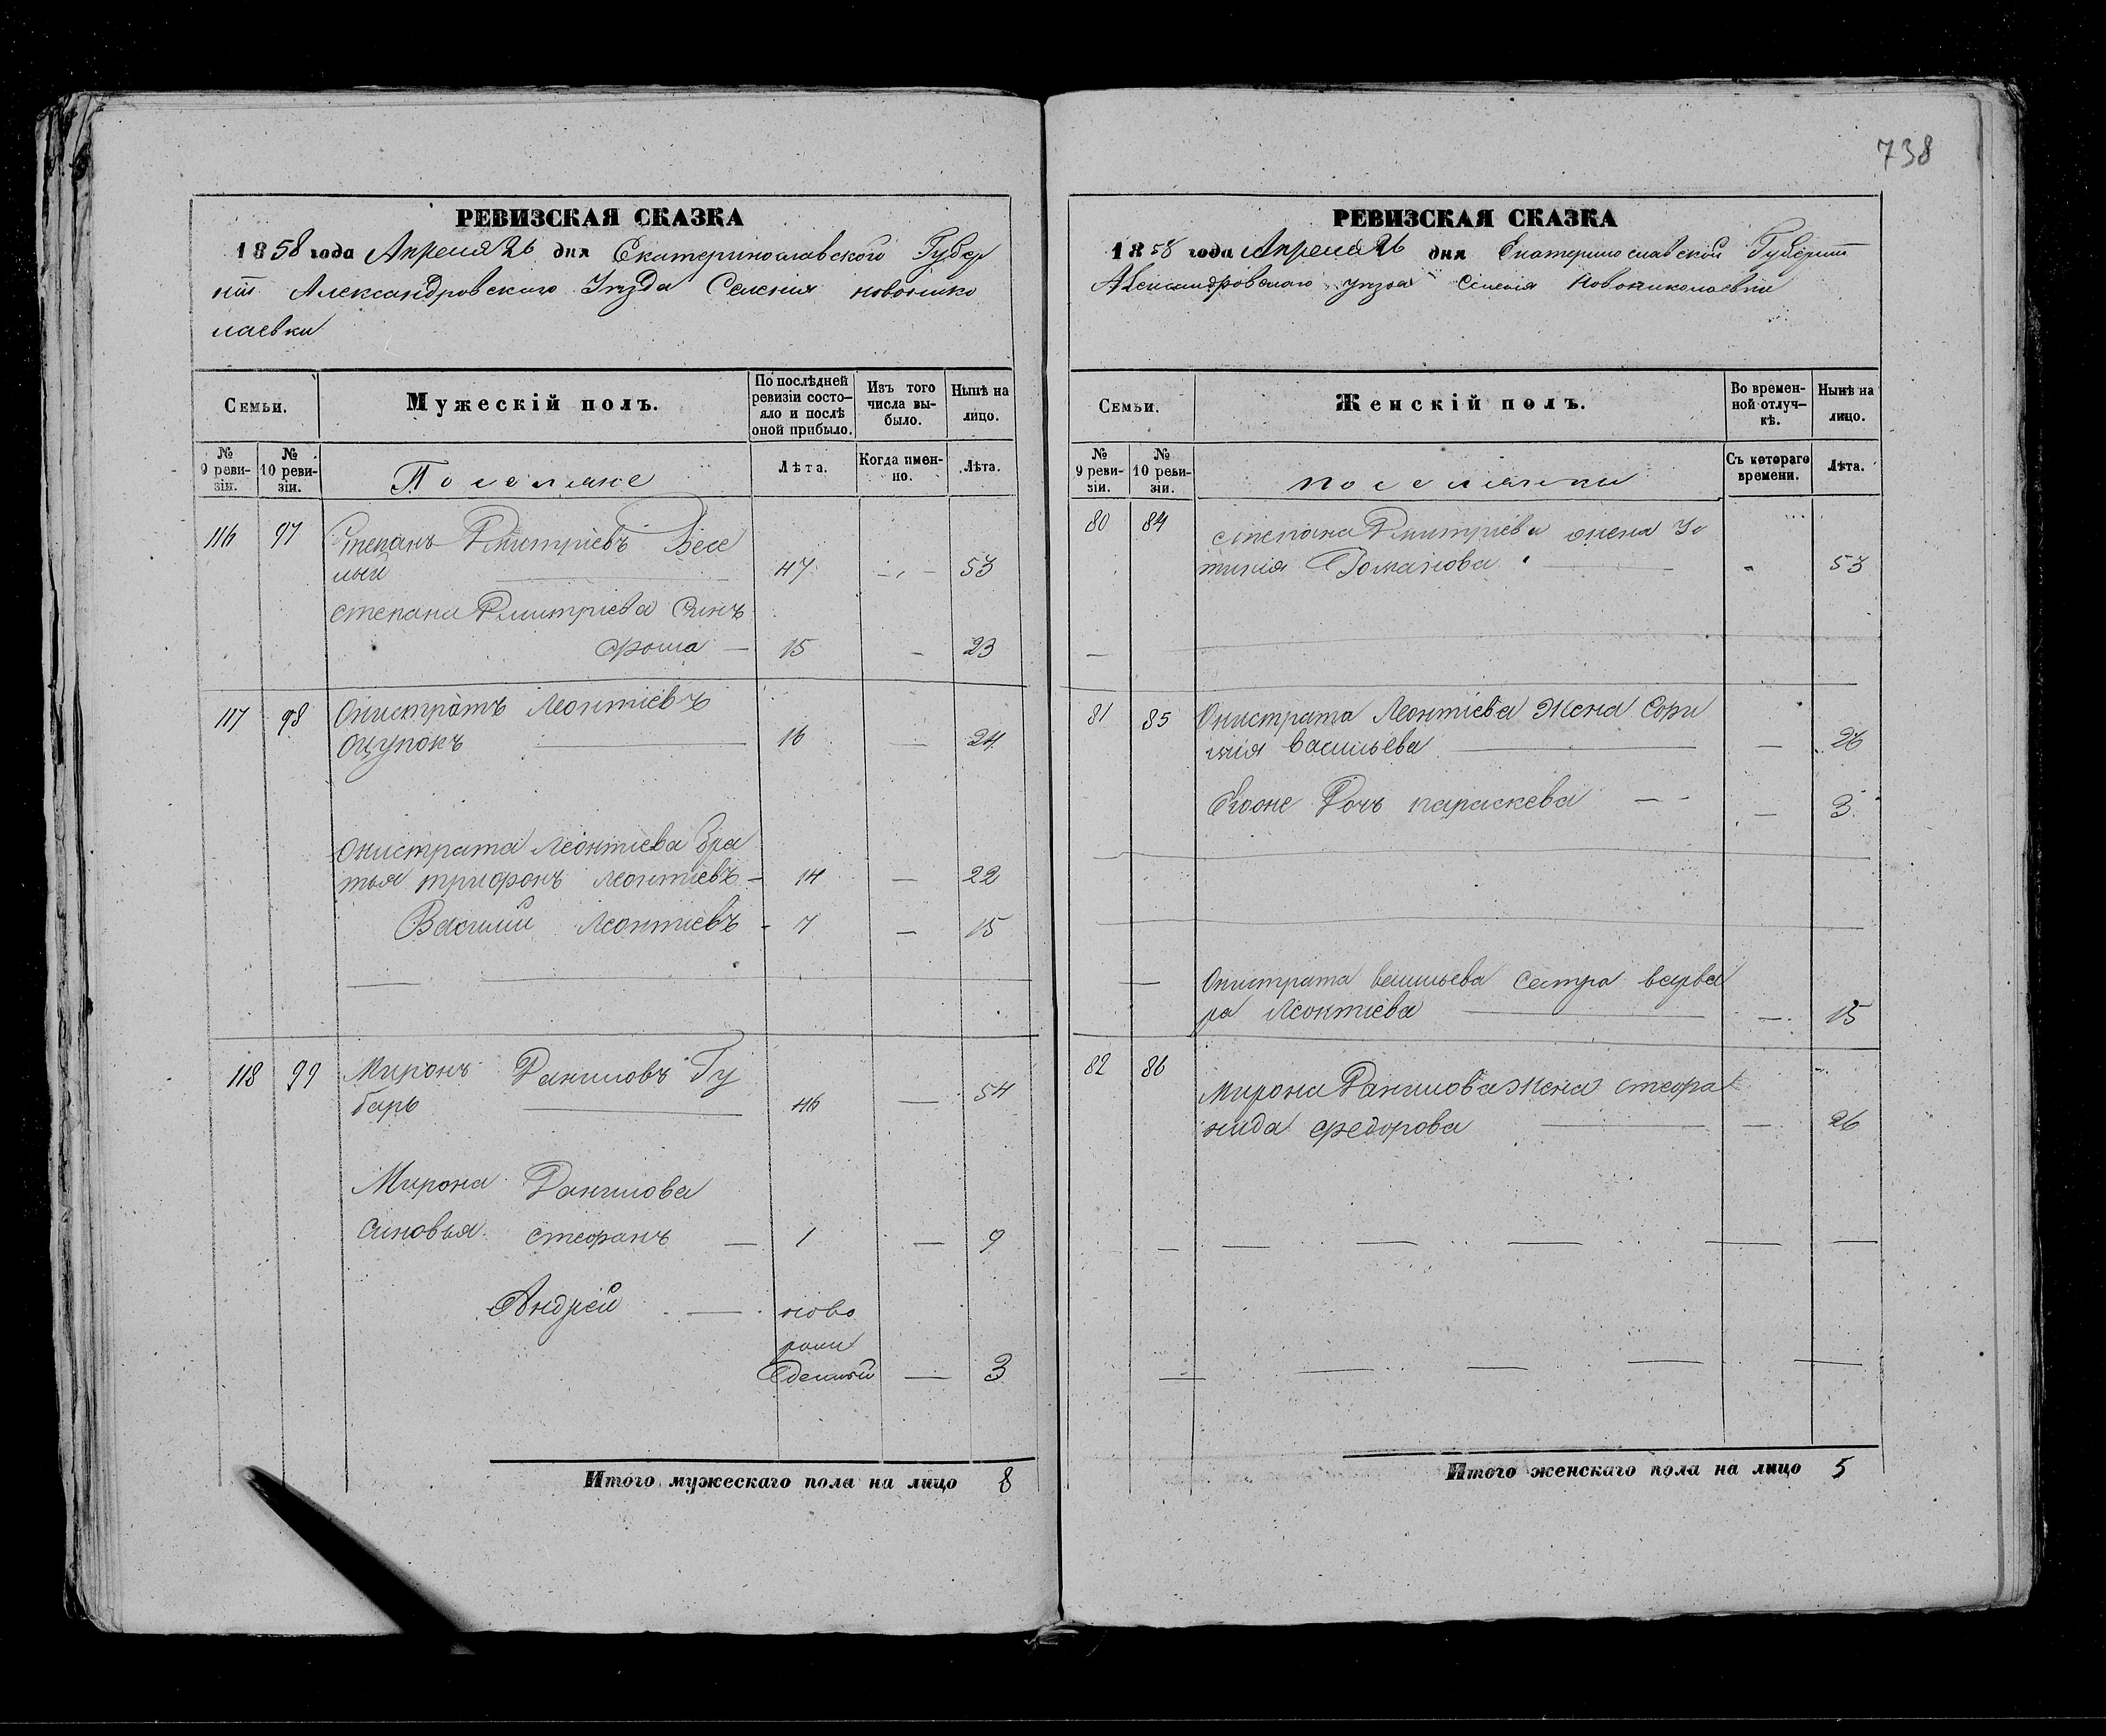 738
РЕВИЗСКАЯ СКАЗКА
1858 года Апреля 26 дня Екатеринославского Губер
нiи Александровскаго Уезда Селения новонико
лаевки
Семьи.
Мужескій полъ.
По послѣдней ревизіи состо-яло и послѣ оной прибыло.
Изъ того числа вы-было.
Нынѣ на лицо.
№ 9 реви-зіи.
№ 10 реви-зіи.
Поселяне
Лѣта.
Когда имен-но.
Лѣта.
116 97 Степанъ Дмитріевъ Весе
лый 47 — 53
степана Дмитріева Синъ
15 — 23
117 98 Онистратъ Леонтіевъ
Оцупокъ — 16 — 24
Онистрата Леонтіева бра
тья трифонъ леонтіевъ — 14 — 22
Василий Леонтіевъ - 7 — 15
118 99 Миронъ Даниловъ Гу
барь — 46 — 54
Мирона Данилова
синовья стефанъ — 1 — 9
Андрей — ново
рож
денный — 3
Итого мужескаго пола на лицо 8
РЕВИЗСКАЯ СКАЗКА
1858 года Апреля 26 дня Екатеринославской Губернiи
Александровскаго уезда Селения Новониколаевки
Семьи.
Женскій полъ.
Во времен-ной отлуч-кѣ.
Нынѣ на лицо.
№ 9 реви-зіи.
№ 10 реви-зіи.
поселянки
Съ котораго времени.
Лѣта.
80 84 степана Дмитріева жена Ус
тиния Романова — 53
81 85 Онистрата Леонтіева Жена
васильева — — 26
Егоже Дочь параскева — — 3
Онистрата васильева сестра варва
ра Леонтіева — — 15
82 86 Мирона Данилова жена стефа
нида федорова — — 26
Итого женскаго пола на лицо 5